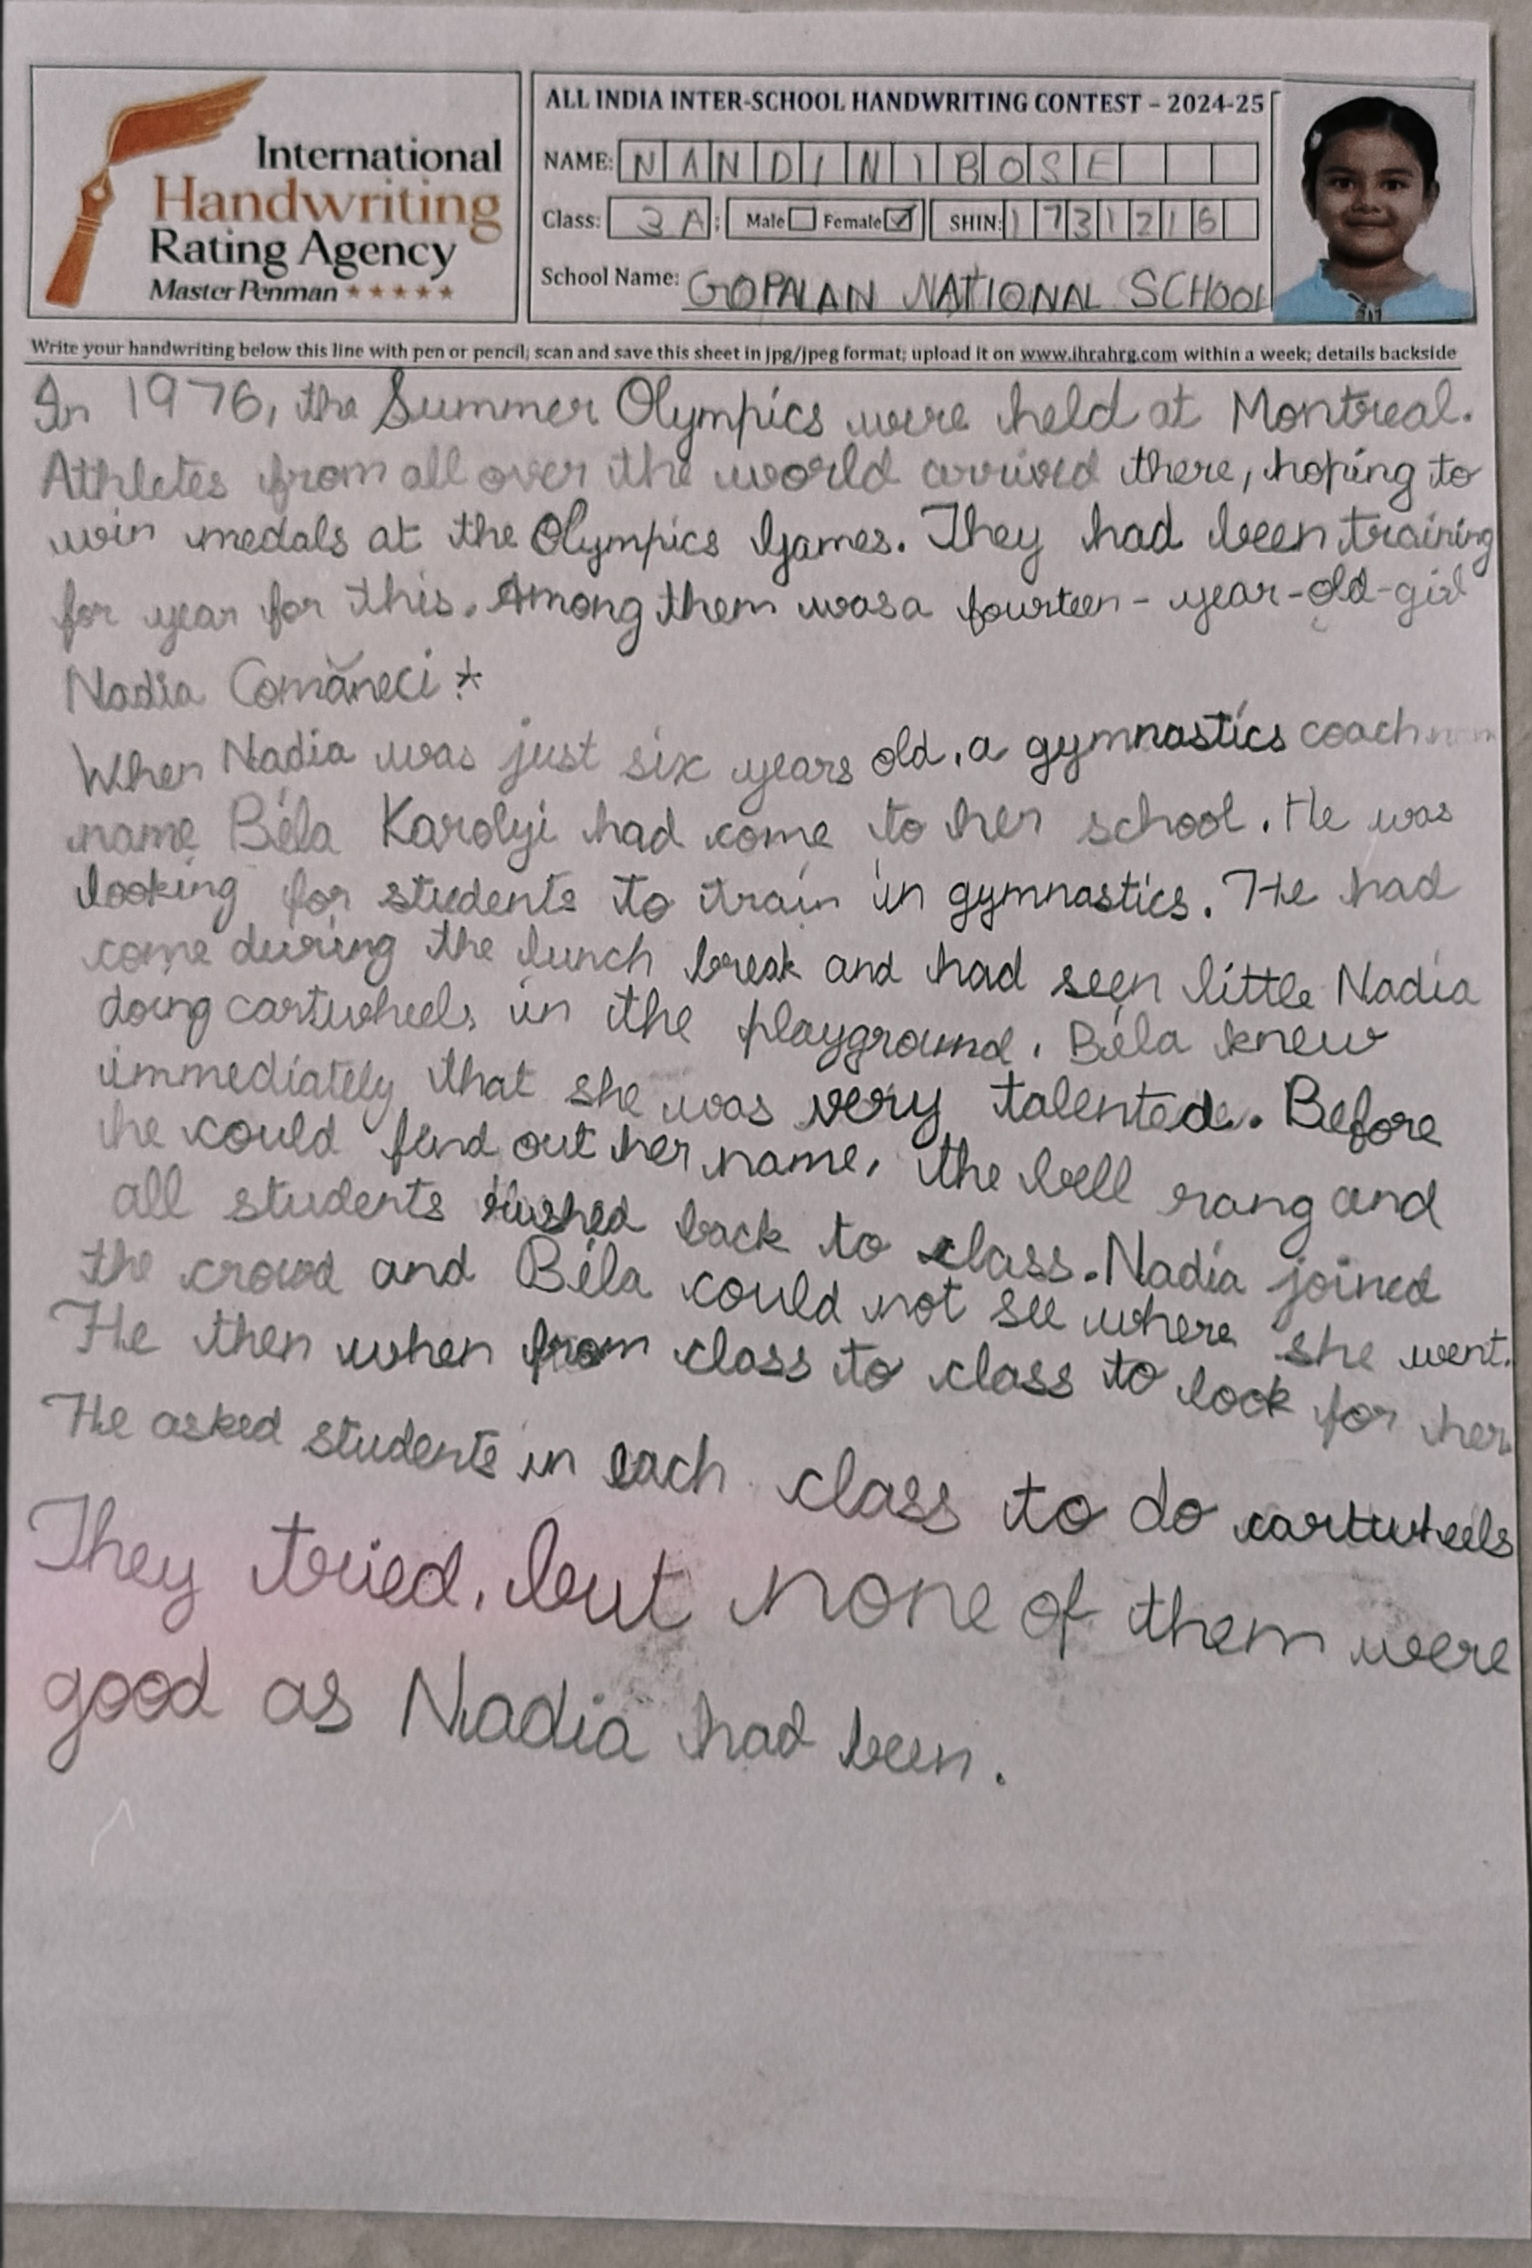 International
Handwriting
Rating Agency
Master Penman ★★★★★
ALL INDIA INTER-SCHOOL HANDWRITING CONTEST – 2024-25
NAME: NANDINI BOSE
Class: 3 A; Male Female ✓ SHIN: 1731216
School Name: GOPALAN NATIONAL SCHOOL
Write your handwriting below this line with pen or pencil; scan and save this sheet in jpg/jpeg format; upload it on www.ihrahrg.com within a week; details backside
In 1976, the Summer Olympics were held at Montreal.
Athletes from all over the world arrived there, hoping to
win medals at the Olympics Games. They had been training
for year for this. Among them was a fourteen-year-old-girl
Nadia Comăneci *
When Nadia was just six years old, a gymnastics coach
name Béla Karolyi had come to her school. He was
looking for students to train in gymnastics. He had
come during the lunch break and had seen little Nadia
doing cartwheels in the playground. Béla knew
immediately that she was very talented. Before
he could find out her name, the bell rang and
all students rushed back to class. Nadia joined
the crowd and Béla could not see where she went.
He then when from class to class to look for her.
He asked students in each class to do cartwheels
They tried, but none of them were
good as Nadia had been.